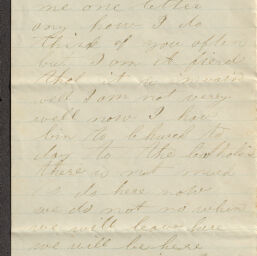 me one letter
any how I do
think of you often
but I am a fierd
that it is in vain
well I am not very
well now I have
bin to Church to
day to the Catholic
there is not much
to do here now
we do not no when
we will leave here
we will be here